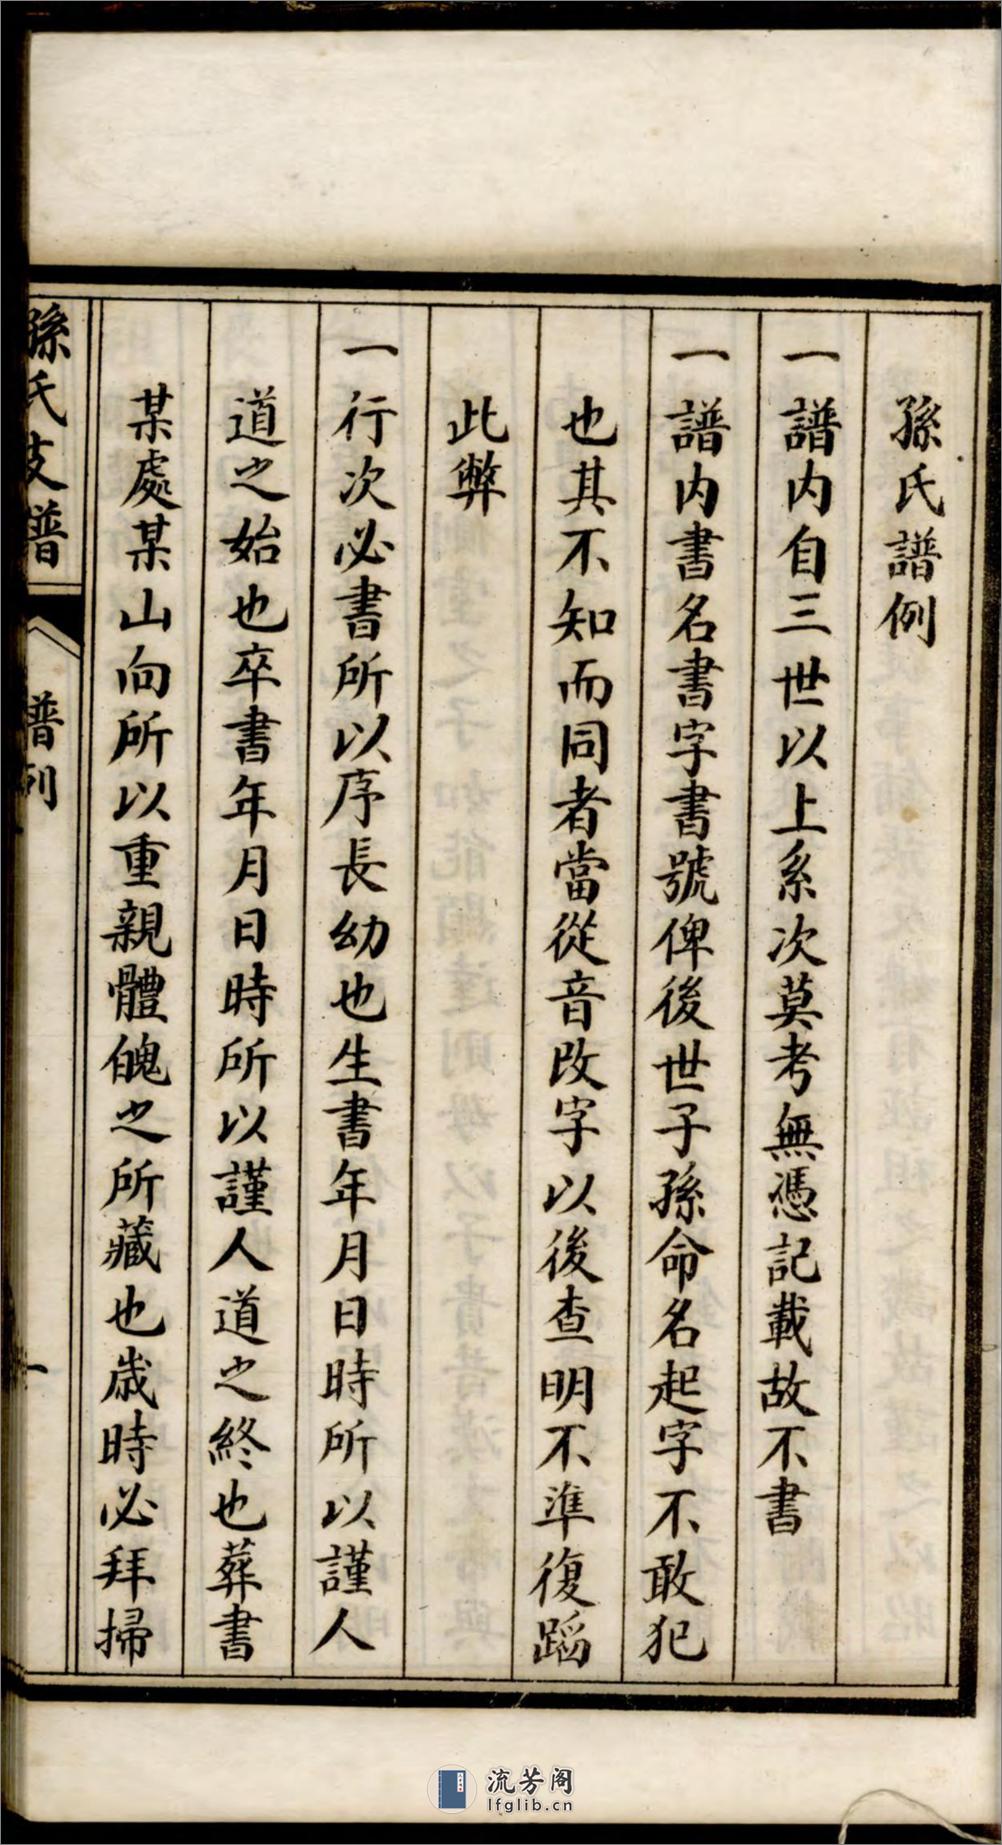 孫氏譜例
一譜内自三世以上系次莫考無憑記載故不書
一譜内書名書字書號俾後世子孫命名起字不敢犯
也其不知而同者當從音改字以後查明不準復蹈
此弊
一行次必書所以序長幼也生書年月日時所以謹人
道之始也卒書年月日時所以謹人道之終也葬書
某處某山向所以重親體魄之所藏也歲時必拜掃
孫氏支譜
譜例
一
流芳阁
lfglib.cn